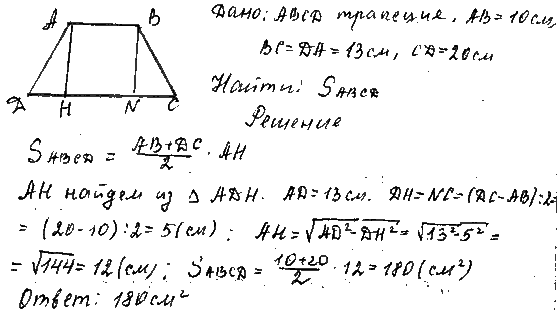 Дано: ABCD трапеция, AB=10см,
BC=DA=13см, CD=20см
Найти: S_ABCD
Решение
A B
D H N C
S_ABCD = (AB+DC)/2 · AH
AH найдем из △ ADH. AD=13см. DH=NC=(DC-AB):2=
= (20-10):2=5(см); AH=√AD²-DH²=√13²-5²=
=√144=12(см); S_ABCD=(10+20)/2·12=180(см²)
Ответ: 180см²